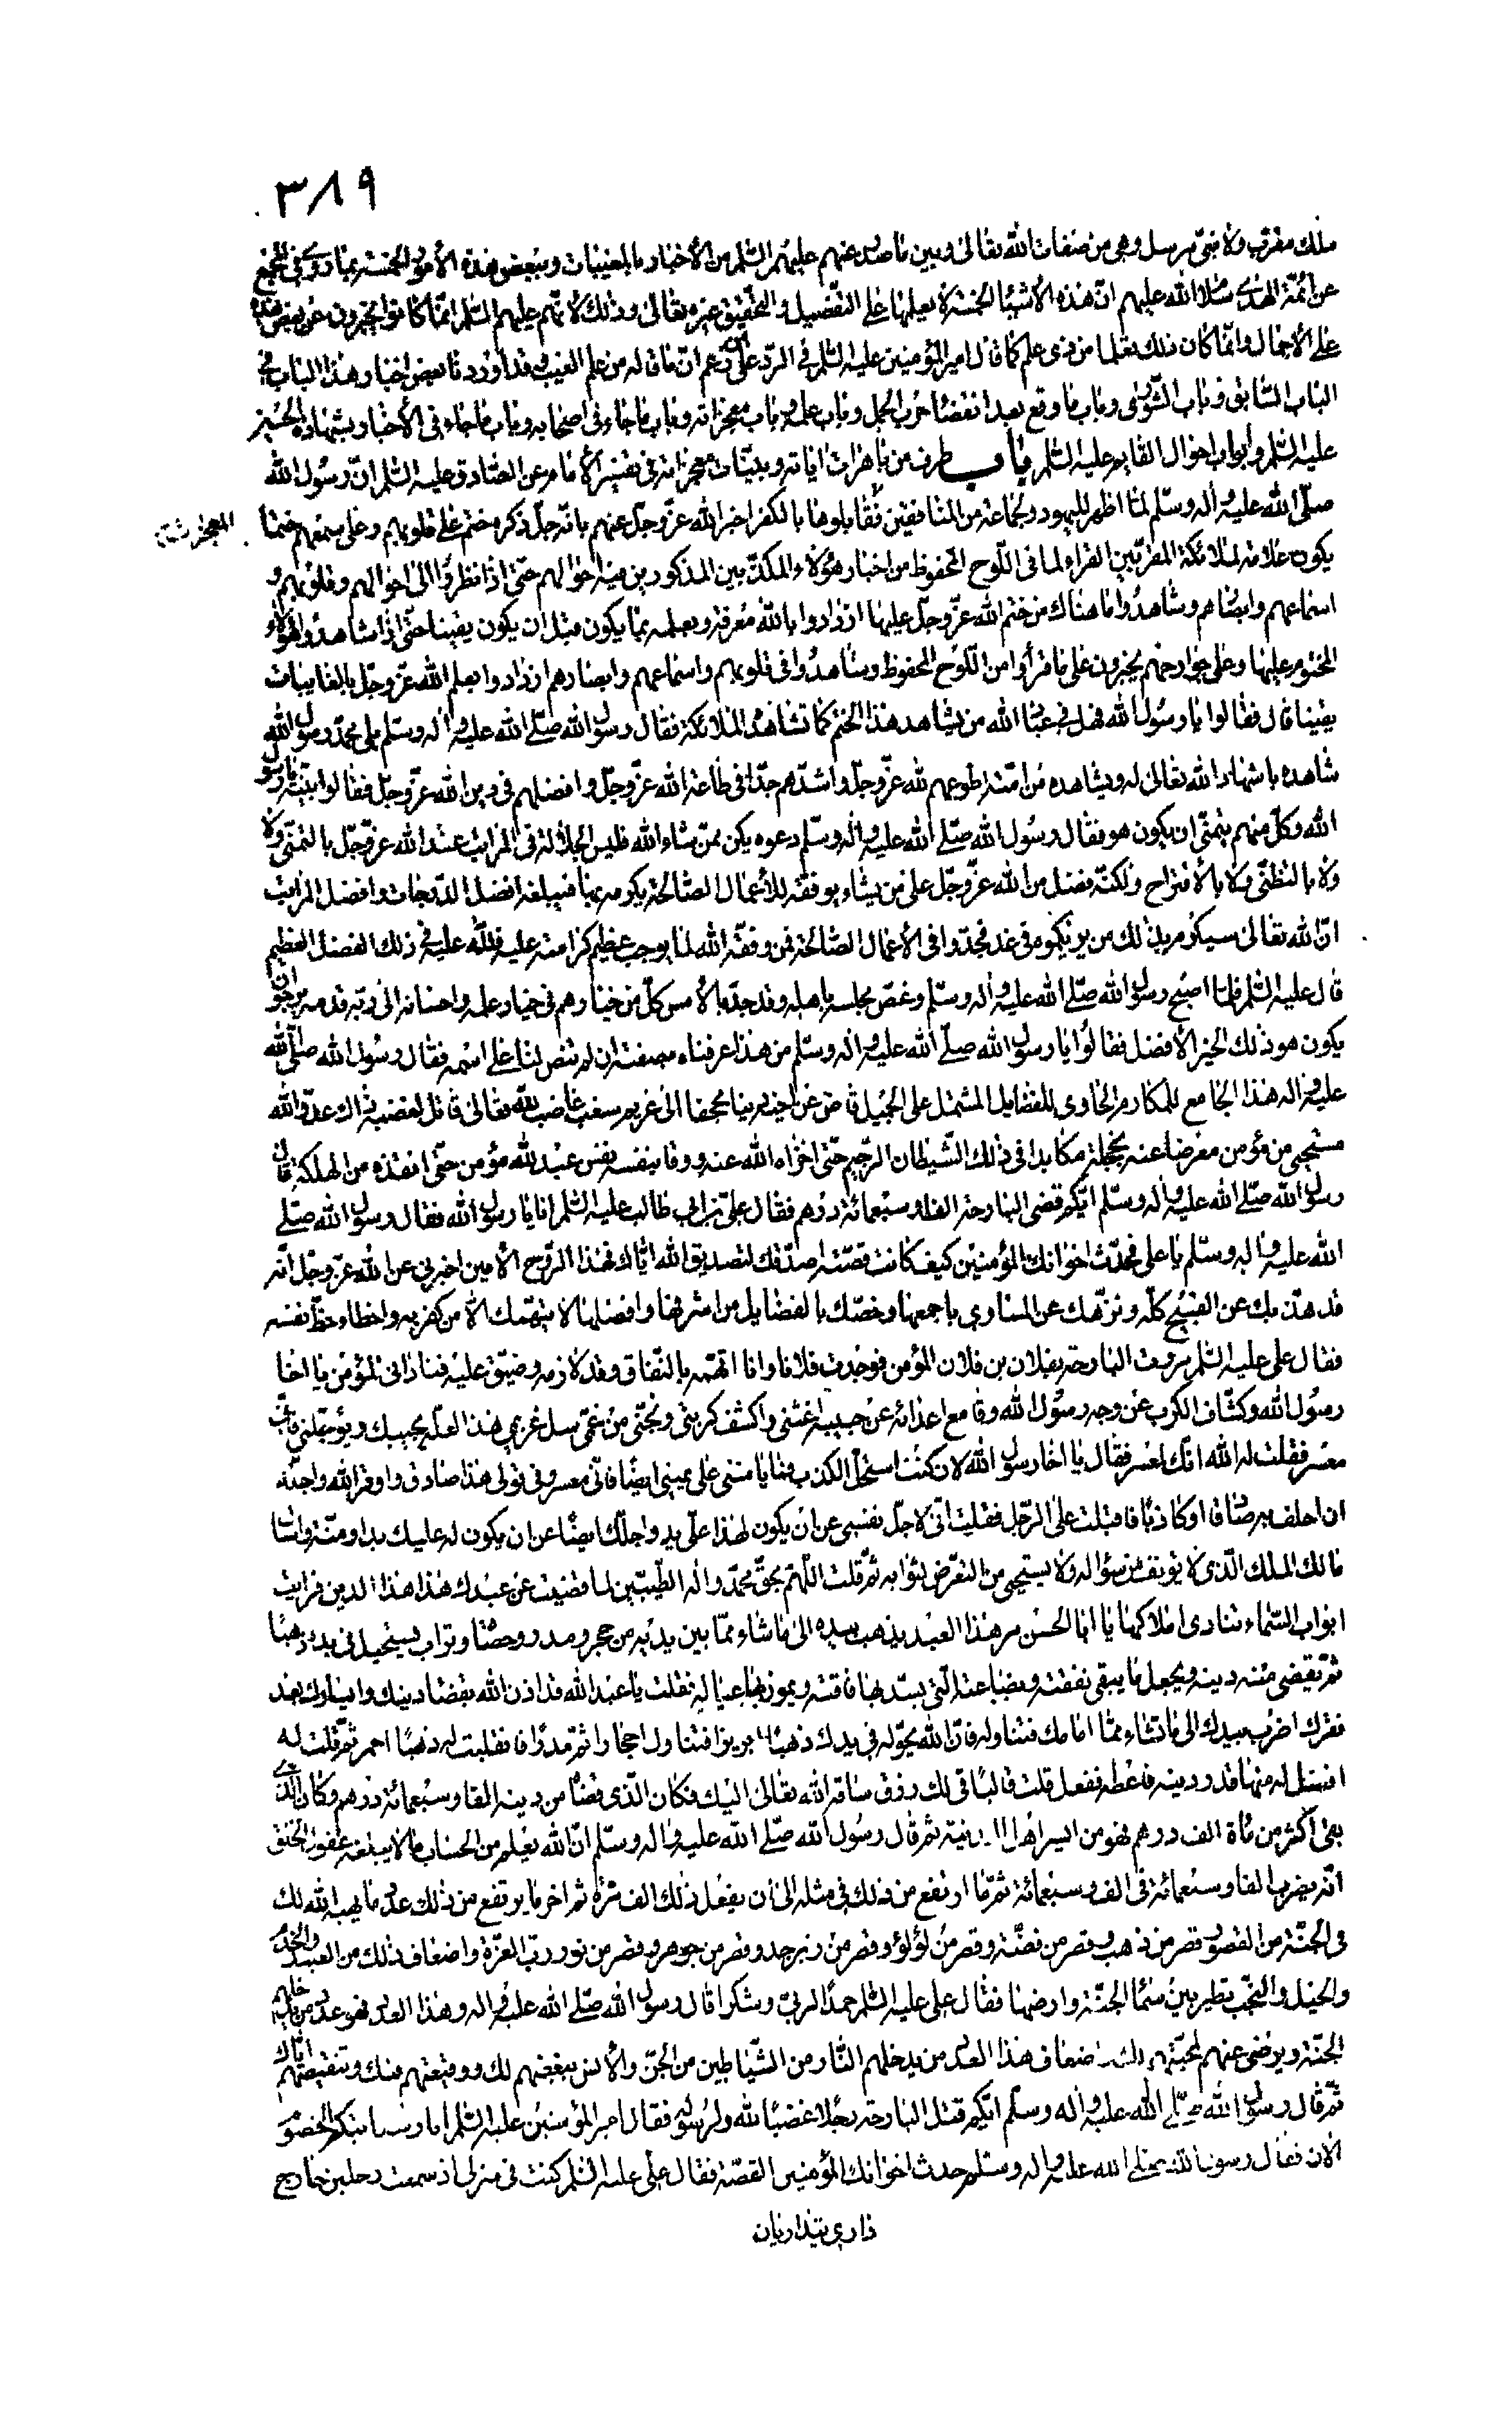 ٣٨٩
ملك مقرب ولا نبيّ مرسل وهي من صفات الله تعالى وبين ما صدر عنهم عليهم السّلم من الأخبار بالمغيبات وببعض هذه الأمور الخمسة بما روي في
عن ائمّة الهدى سلام الله عليهم انّ هذه الأشياء الخمسة لا يعلمها على التّفصيل والتّحقيق غيره تعالى وذلك لأنّهم عليهم السّلم انّما كانوا يخبرون عن بعض هذه
على الأجمال وانّما كان ذلك تعلّما من ذي علم كما قال امير المؤمنين عليه السّلم في الردّ على من زعم انّ ما قاله من علم الغيب وقد اوردنا بعض اخبار هذا الباب في
الباب السّابق وباب الشّورى وباب ما وقع بعد انقضاء حرب الجمل وباب علمه وباب معجزاته وباب ما جاء في اصحابه وباب ما جاء في الأخبار بشهادة الحسين
عليه السّلم وابواب احوال القايم عليه السّلم باب طرف من باهرات اياته وبيّنات معجزاته في تفسير الأمام عن الصّادق عليه السّلم انّ رسول الله
صلّى الله عليه واله وسلّم لمّا اظهر لليهود ولجماعة من المنافقين فقابلوها بالكفر اخبر الله عزّ وجلّ عنهم بانّه جلّ ذكره ختم على قلوبهم وعلى سمعهم ختما
يكون علامة لملائكته المقرّبين القراء لما في اللّوح المحفوظ من اخبار هؤلاء المكذّبين المذكورين فيه احوالهم حتّى اذا نظروا الى احوالهم وقلوبهم و
اسماعهم وابصارهم وشاهدوا ما هناك من ختم الله عزّ وجلّ عليها ازدادوا بالله معرفة وبعلمه بما يكون قبل ان يكون يقينا حتّى اذا شاهدوا هؤلاء
المختوم عليها وعلى جوارحهم يخبرون على ما قرأوا من اللّوح المحفوظ وشاهدوا في قلوبهم واسماعهم وابصارهم ازدادوا بعلم الله عزّ وجلّ بالغايبات
يقينا قال فقالوا يا رسول الله فهل في عباد الله من يشاهد هذا الختم كما تشاهده الملائكة فقال رسول الله صلّى الله عليه واله وسلّم بلى محمّد رسول الله
شاهده باشهاد الله تعالى له ويشاهده من امّته اطوعهم لله عزّ وجلّ واشدّهم جدّا في طاعة الله عزّ وجلّ وافضلهم في دين الله عزّ وجلّ فقالوا بيّنه يا رسول
الله وكلّ منهم يتمنّى ان يكون هو فقال رسول الله صلّى الله عليه واله وسلّم دعوه يكن ممّن شاء الله فليس الجلالة في المراتب عند الله عزّ وجلّ بالتمنّي ولا
ولا بالتظنّي ولا بالأقتراح ولكنّه فضل من الله عزّ وجلّ على من يشاء يوفّقه للأعمال الصّالحة يكرمه بها فيبلغه افضل الدّرجات وافضل المراتب
انّ الله تعالى سيكرم بذلك من يريكموه في غد فجدّوا في الأعمال الصّالحة فمن وفّقه الله لما يوجب عظيم كرامته عليه فللّه عليه في ذلك الفضل العظيم
قال عليه السّلم فلمّا اصبح رسول الله صلّى الله عليه واله وسلّم وغصّ مجلسه باهله وقد جدّ بالأمس كلّ من خيارهم في خيار عمله واحسانه الى ربّه قدمه يرجو ان
يكون هو ذلك الخير الأفضل فقالوا يا رسول الله صلّى الله عليه واله وسلّم من هذا عرّفناه بصفته ان لم تنصّ لنا على اسمه فقال رسول الله صلّى الله
عليه واله هذا الجامع للمكارم الحاوي للفضايل المشتمل على الجميل قاض عن اخيه دينا مجحفا الى غريم سغب غاضب لله تعالى قاتل لغضبه ذاك عدوّ الله
مستحيي من مؤمن معرضا عنه بخجلة مكابدا في ذلك الشّيطان الرّجيم حتّى اخزاه الله عنه ووقا بنفسه نفس عبد لله مؤمن حتّى انقذه من الهلكة ثم قال
رسول الله صلّى الله عليه واله وسلّم ايّكم قضى البارحة الفا وسبعمائة درهم فقال عليّ بن ابي طالب عليه السّلم انا يا رسول الله فقال رسول الله صلّى
الله عليه واله وسلّم يا علي فحدّث اخوانك المؤمنين كيف كانت قصّته اصدّقك لتصديق الله ايّاك فهذا الرّوح الأمين اخبرني عن الله عزّ وجلّ انّه
قد هذّبك عن القبيح كلّه ونزّهك عن المساوي باجمعها وخصّك بالفضايل من اشرفها وافضلها لا يتّهمك الّا من كفر به واخطاء حظّ نفسه
فقال علي عليه السّلم مررت البارحة بفلان بن فلان المؤمن فوجدت فلانا وانا اتّهمه بالنّفاق وقد لازمه وضيّق عليه فناداني المؤمن يا اخا
رسول الله وكشّاف الكرب عن وجه رسول الله وقامع اعدائه عن حبيبه اغثني واكشف كربتي ونجّني من غمّي سل غريمي هذا لعلّه يجيبك ويؤجّلني فانّي
معسر فقلت له الله انّك لمعسر فقال يا اخا رسول الله لان كنت استحلّ الكذب فما يامنني على يميني ايضا فانّي معسر وفي قولي هذا صادق واوقر الله واجلّه
ان احلف به صادقا او كاذبا فاقبلت على الرّجل فقلت انّي لاجلّ نفسي عن ان يكون لهذا عليّ يد واجلّك ايضا عن ان يكون له عليك يد او منّة واسأل
مالك الملك الّذي لا يؤنف من سؤاله ولا يستحيي من التّعرّض لثوابه ثمّ قلت اللّهمّ بحقّ محمّد واله الطّيّبين لما قضيت عن عبدك هذا هذا الدين فرايت
ابواب السّماء تنادى املاكها يا ابا الحسن مر هذا العبد يذهب بيده الى ما شاء ممّا بين يديه من حجر ومدر وحصا وتراب يستحيل في يده ذهبا
ثمّ يقضي منه دينه ويجعل ما يبقى نفقته وبضاعته الّتي يسدّ بها فاقته ويمون بها عياله فقلت يا عبد الله قد اذن الله بقضاء دينك وايسارك بعد
فقرك اضرب بيدك الى ما تشاء ممّا امامك فتناوله فانّ الله يحوّله في يدك ذهبا ابريزا فتناول احجارا ثمّ مدرا فانقلبت له ذهبا احمر ثمّ قلت له
افصل له منها قدر دينه فاعطه ففعل قلت فالباقي لك رزق ساقه الله تعالى اليك فكان الّذي قضاه من دينه الفا وسبعمائة درهم وكان الّذي
بقي اكثر من مأة الف درهم فهو من ايسر اهل المدينة ثم قال رسول الله صلّى الله عليه واله وسلّم انّ الله يعلم من الحساب ما لا يبلغه عقول الخلق
انّه يضرب الفا وسبعمائة في الف وسبعمائة ثمّ ما ارتفع من ذلك في مثله الى ان يفعل ذلك الف مرّة ثم اخر ما يرتفع من ذلك عدد ما يهبه الله لك
في الجنّة من القصور قصر من ذهب وقصر من فضّة وقصر من لؤلؤ وقصر من زبرجد وقصر من جوهر وقصر من نور ربّ العزّة واضعاف ذلك من العبيد والخدم
والخيل والنّجب تطير بين سماء الجنّة وارضها فقال علي عليه السّلم حمدا لربّي وشكرا قال رسول الله صلّى الله عليه واله وهذا العدد فهو عدد من يدخلهم
الجنّة ويرضى عنهم لمحبّتهم لك واضعاف هذا العدد من يدخلهم النّار من الشّياطين من الجنّ والأنس ببغضهم لك ووقيعتهم فيك وتنقيصهم ايّاك
ثمّ قال رسول الله صلّى الله عليه واله وسلّم ايّكم قتل البارحة رجلا غضبا لله ولرسوله فقال امير المؤمنين عليه السّلم انا وسياتيك الخصوم
الان فقال رسول الله صلى الله عليه واله وسلم حدث اخوانك المؤمنين القصّة فقال علي عليه السّلم كنت في منزلي اذ سمعت رجلين خارج
داري يتدارءان